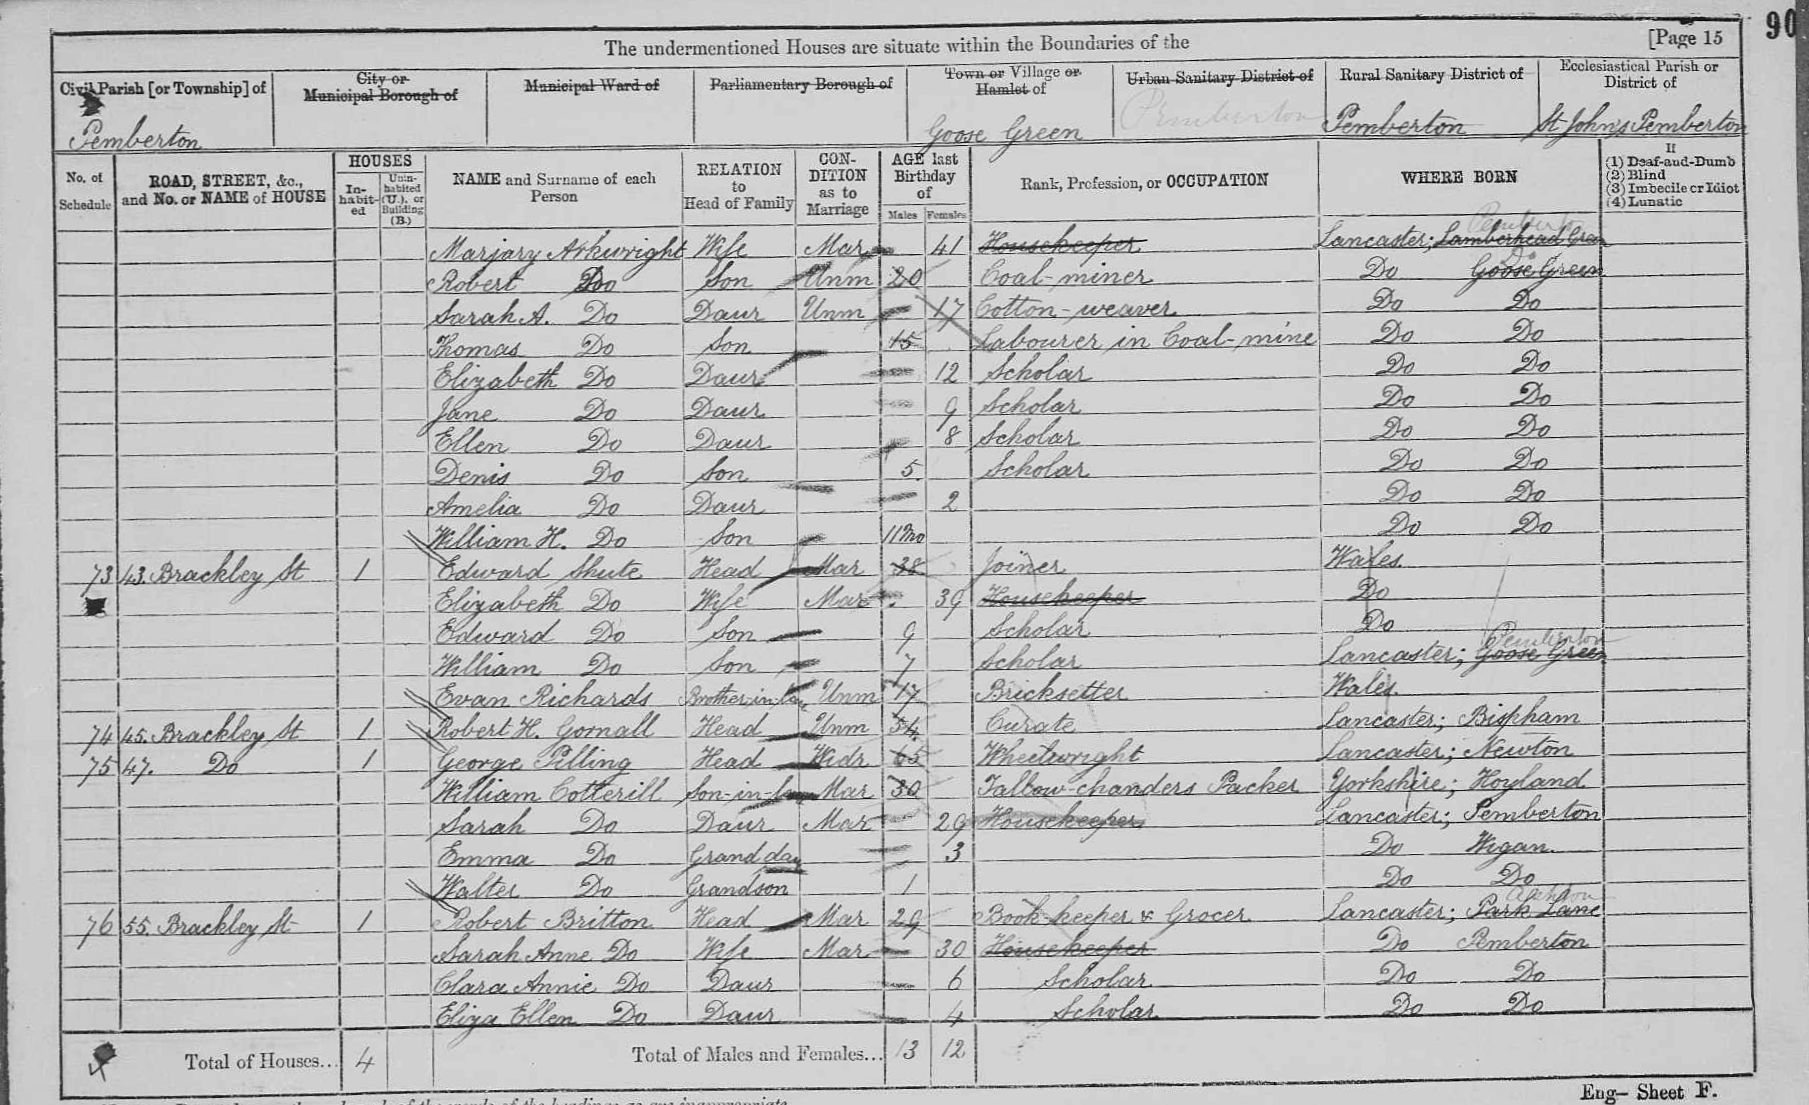 90
The undermentioned Houses are situate within the Boundaries of the [Page 15
Civil Parish [or Township] of City or Municipal Borough of Municipal Ward of Parliamentary Borough of Town or Village or Hamlet of Urban Sanitary District of Rural Sanitary District of Ecclesiastical Parish or District of
Pemberton Goose Green Pemberton Pemberton St John's Pemberton
No. of Schedule ROAD, STREET, &c., and No. or NAME of HOUSE HOUSES In-habit-ed Unin-habited (U.), or Building (B.) NAME and Surname of each Person RELATION to Head of Family CON-DITION as to Marriage AGE last Birthday of Males Females Rank, Profession, or OCCUPATION WHERE BORN If (1) Deaf-and-Dumb (2) Blind (3) Imbecile or Idiot (4) Lunatic
Marjary Arkwright Wife Mar 41 Housekeeper Lancaster; Lamberhead Green Pemberton
Robert Do Son Unm 20 Coal-miner Do Goose Green Do
Sarah A. Do Daur Unm 17 Cotton-weaver Do Do
Thomas Do Son 15 Labourer in Coal-mine Do Do
Elizabeth Do Daur 12 Scholar Do Do
Jane Do Daur 9 Scholar Do Do
Ellen Do Daur 8 Scholar Do Do
Denis Do Son 5 Scholar Do Do
Amelia Do Daur 2 Do Do
William H. Do Son 11 Mo Do Do
73 43. Brackley St 1 Edward Shute Head Mar 38 Joiner Wales
Elizabeth Do Wife Mar 39 Housekeeper Do
Edward Do Son 9 Scholar Do
William Do Son 7 Scholar Lancaster; Goose Green Pemberton
Evan Richards Brother-in-law Unm 17 Bricksetter Wales
74 45. Brackley St 1 Robert H. Gornall Head Unm 54 Curate Lancaster; Bispham
75 47. Do 1 George Pilling Head Widr 65 Wheelwright Lancaster; Newton
William Cotterill Son-in-law Mar 30 Tallow-chanders Packer Yorkshire; Hoyland
Sarah Do Daur Mar 29 Housekeeper Lancaster; Pemberton
Emma Do Grand daur 3 Do Wigan
Walter Do Grandson 1 Do Do
76 55. Brackley St 1 Robert Britton Head Mar 29 Book-keeper & Grocer Lancaster; Park Lane Ashton
Sarah Anne Do Wife Mar 30 Housekeeper Do Pemberton
Clara Annie Do Daur 6 Scholar Do Do
Eliza Ellen Do Daur 4 Scholar Do Do
Total of Houses... 4 Total of Males and Females... 13 12
Eng— Sheet F.